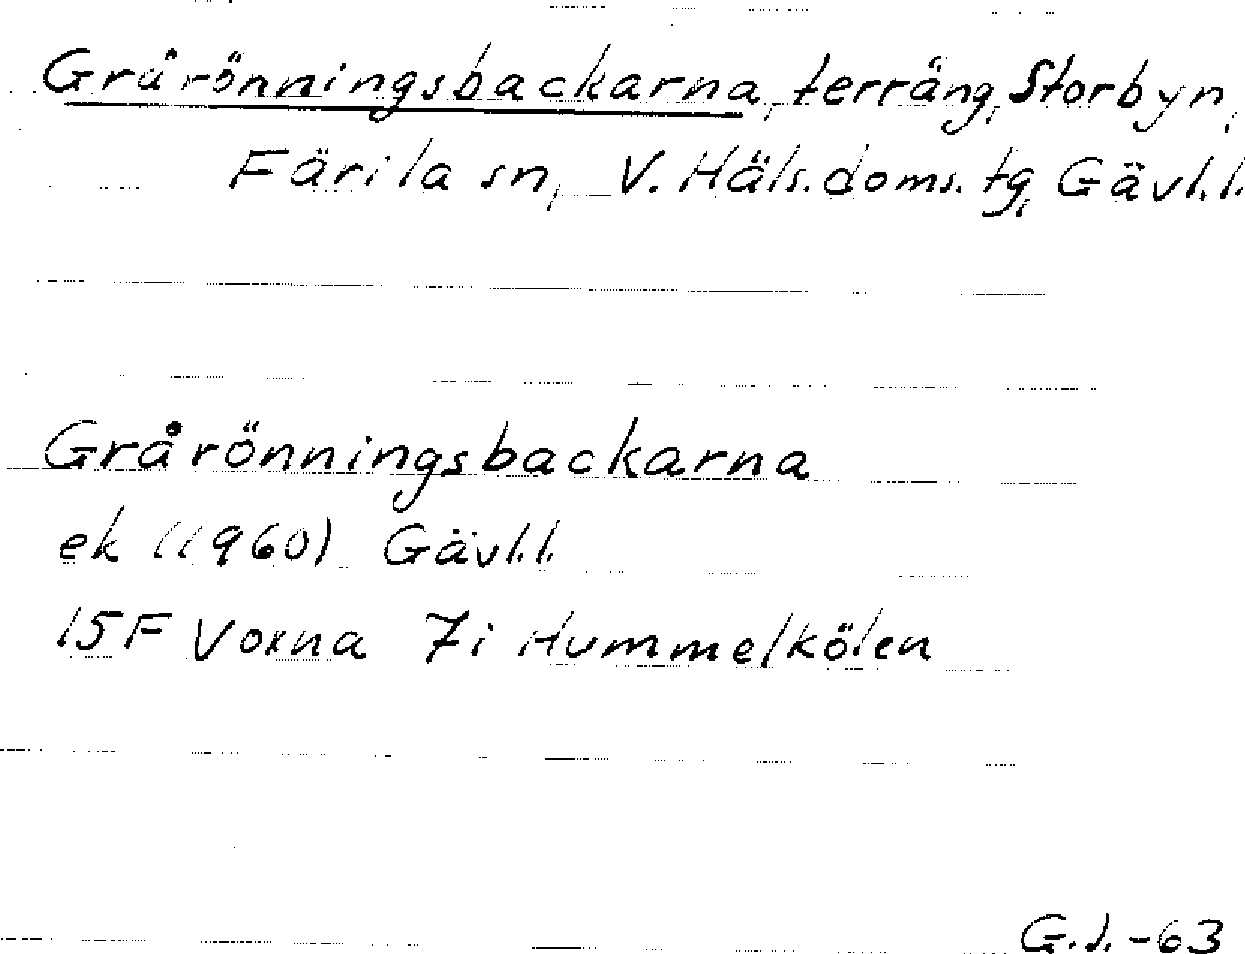 Grårönningsbackarna, terräng, Storbyn,
Färila sn, V. Häls. doms. tg, Gävl.l.
Grårönningsbackarna
ek (1960) Gävl.l.
15F Voxna 7i Hummelkölen
G.J.-63